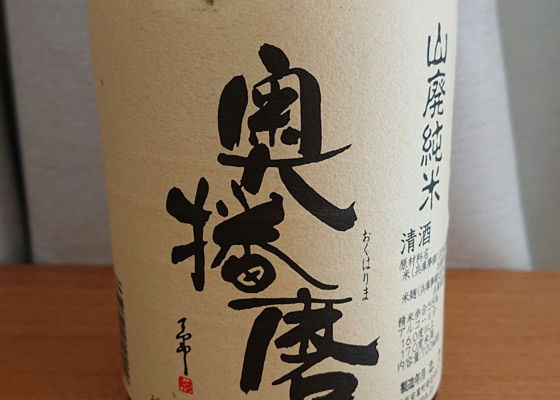 山廃純米
奥播磨
おくはりま
清酒
原材料名
米(兵庫県
米麹(兵庫県
精米歩合55%
アルコール分
16.0度以上
17.0度未満
内容量720
製造年月